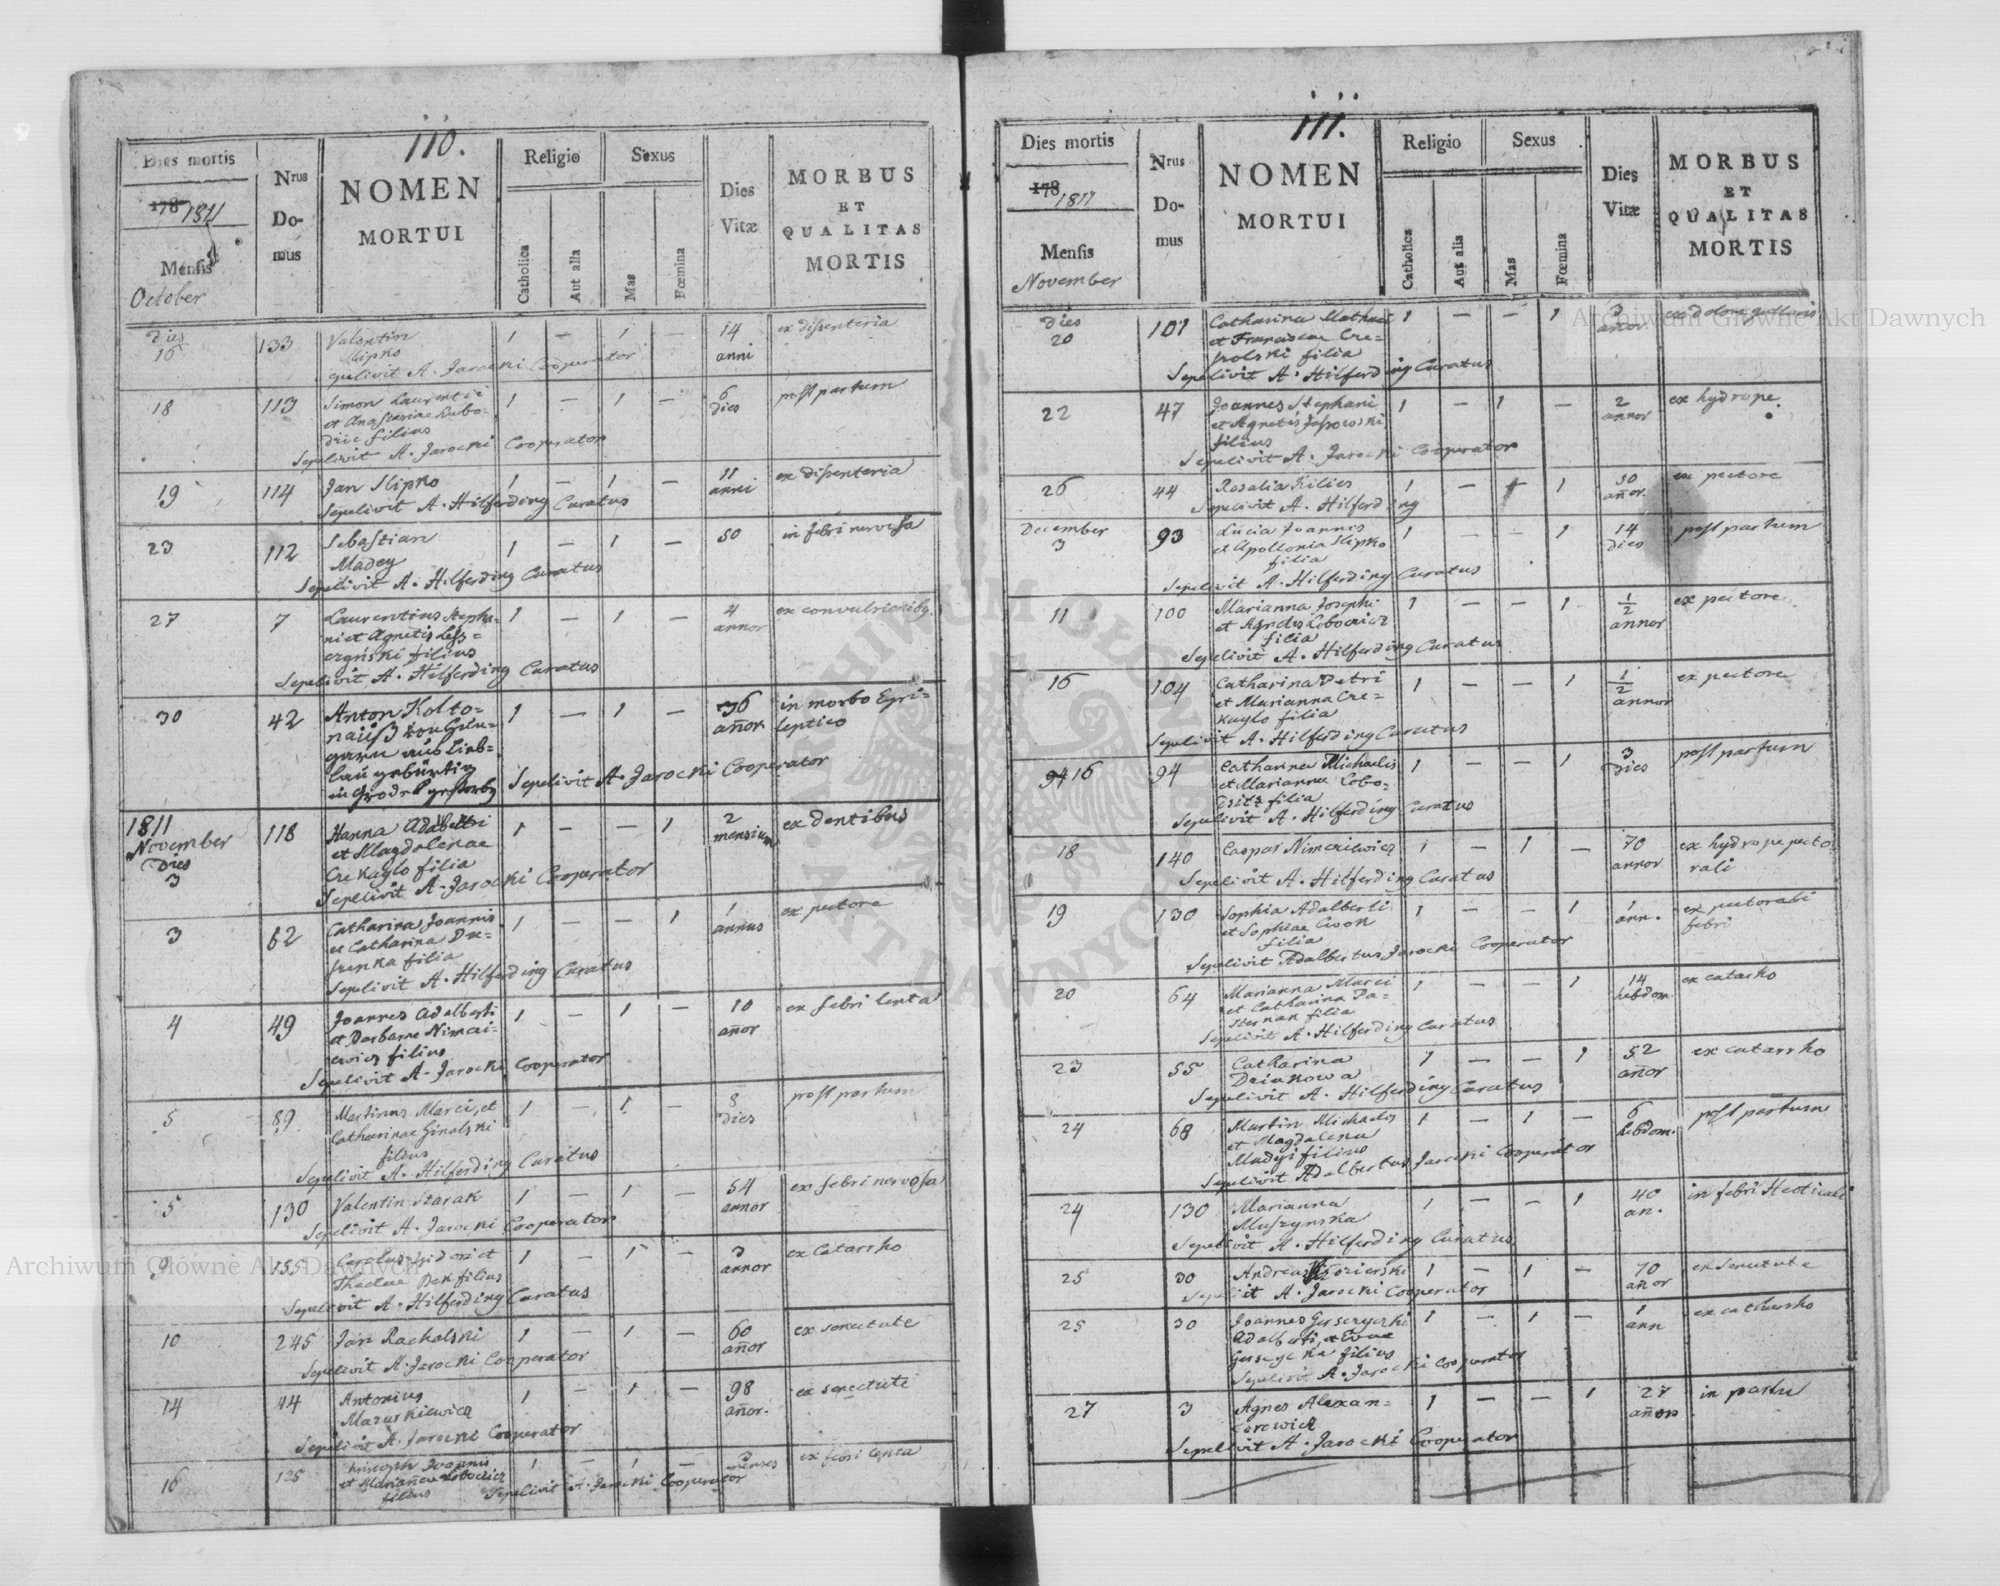 110.
Dies mortis
178 1811
Mensis
October
Nrus
Do-
mus
NOMEN
MORTUI
Religio
Catholica
Aut alia
Sexus
Mas
Fœmina
Dies
Vitæ
MORBUS
ET
QUALITAS
MORTIS
dies
16 133 Valentin 1 — 1 14 ex dissenteria
Slipko anni
Sepelivit A. Jarocki Cooperator
18 113 Simon Laurentii 1 — 1 — 6 post partum
et Anastasiae Kubo- dies
filius
Sepelivit A. Jarocki Cooperator
19 114 Jan Slipko 1 — 1 — 11 ex dissenteria
anni
Sepelivit A. Hilferding Curatus
23 112 Sebastian 1 — 1 — 50 in febri nervosa
Madey
Sepelivit A. Hilferding Curatus
27 7 Laurentius Stepha- 1 — 1 — 4 ex convulsionibq.
ni et Agnetis Lesz- annor
czynski filius
Sepelivit A. Hilferding Curatus
30 42 Anton Kolto- 1 — 1 — 36 in morbo Epi-
annor leptico
Sepelivit A. Jarocki Cooperator
1811
November
Dies
3 118 Hanna Adalberti 1 — — 1 2 ex dentibus
et Magdalenae mensium
Crekaylo filia
Sepelivit A. Jarocki Cooperator
3 62 Catharina Joannis 1 — — 1 1 ex pectore
et Catharina annus
filia
Sepelivit A. Hilferding Curatus
4 49 Joannes Adalberti 1 — 1 — 10 ex febri lenta
et Barbarae Nimcai- añor
ewicz filius
Sepelivit A. Jarocki Cooperator
5 89 Martinus Marci, et 1 — 1 — 8 post partum
Catharinae Ginalski dies
filius
Sepelivit A. Hilferding Curatus
5 130 Valentin Starak 1 — 1 — 54 ex febri nervosa
annor
Sepelivit A. Jarocki Cooperator
9 155 Carolus Isidori et 1 — 1 — 3 ex Catarrho
Theclae filius annor
Sepelivit A. Hilferding Curatus
10 245 Jan Rachalski 1 — 1 — 60 ex senectute
añor
Sepelivit A. Jarocki Cooperator
14 44 Antonius 1 — 1 — 98 ex senectute
Mazurkiewicz añor.
Sepelivit A. Jarocki Cooperator
16 125 Joannis 1 — 1 — ex febri lenta
et Mariannae Lobocicz menses
filius Sepelivit A. Jarocki Cooperator
111.
Dies mortis
178 1811
Mensis
November
Nrus
Do-
mus
NOMEN
MORTUI
Religio
Catholica
Aut alia
Sexus
Mas
Fœmina
Dies
Vitæ
MORBUS
ET
QUALITAS
MORTIS
dies
20 101 Catharina Mathaei 1 — — 1 3 ex dolore gutturis
et Franciscae Cre- annor
polski filia
Sepelivit A. Hilferding Curatus
22 47 Joannes Stephani 1 — 1 — 2 ex hydrope
et Agnetis Jassowski annor
filius
Sepelivit A. Jarocki Cooperator
26 44 Rosalia Kilics 1 — — 1 30 ex pectore
añor.
Sepelivit A. Hilferding
December
3 93 Lucia Joannis 1 — — 1 14 post partum
et Apollonia Slipko dies
filia
Sepelivit A. Hilferding Curatus
11 100 Marianna Josephi 1 — — 1 1/2 ex pectore
et Agnetis Lobocicz annor
filia
Sepelivit A. Hilferding Curatus
16 104 Catharina Petri 1 — — 1 1/2 ex pectore
et Marianna Cre- annor
kaylo filia
Sepelivit A. Hilferding Curatus
94 16 94 Catharina Michaelis 1 — — 1 3 post partum
et Marianna Lobo- dies
filia
Sepelivit A. Hilferding Curatus
18 140 Caspar Nimcziewicz 1 — 1 — 70 ex hydrope pecto
annor rali
Sepelivit A. Hilferding Curatus
19 130 Sophia Adalberti 1 — — 1 1 ex pectorali
et Sophiae Cwok ann. febri
filia
Sepelivit Adalbertus Jarocki Cooperator
20 64 Marianna Marci 1 — — 1 14 ex catarho
et Catharina Pa- hebdom.
sternak filia
Sepelivit A. Hilferding Curatus
23 55 Catharina 1 — — 1 52 ex catarrho
Dziukowa añor
Sepelivit A. Hilferding Curatus
24 68 Martin Michaelis 1 — 1 — 6 post partum
et Magdalena hebdom.
Madyi filius
Sepelivit Adalbertus Jarocki Cooperator
24 130 Marianna 1 — — 1 40 in febri Hecticali
Muszynska an.
Sepelivit A. Hilferding Curatus
25 30 Andreas 1 — 1 — 70 ex senectute
añor
Sepelivit A. Jarocki Cooperator
25 30 Joannes 1 — 1 — 1 ex catharrho
Adalberti, et Evae ann
filius
Sepelivit A. Jarocki Cooperator
27 3 Agnes Alexan- 1 — — 1 27 in partu
derowicz añor
Sepelivit A. Jarocki Cooperator
Archiwum Główne Akt Dawnych
Archiwum Główne Akt Dawnych
ARCHIWUM GŁÓWNE AKT DAWNYCH